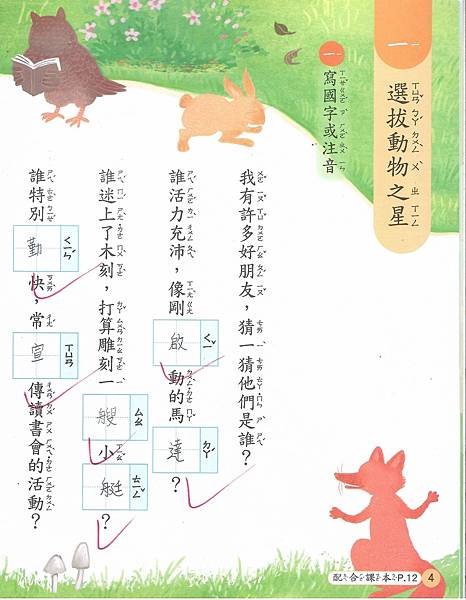 一 選拔動物之星
一 寫國字或注音
我有許多好朋友，猜一猜他們是誰？
誰活力充沛，像剛啟動的馬達？
誰迷上了木刻，打算雕刻一艘小艇？
誰特別勤快，常宣傳讀書會的活動？
配合課本P.12 4